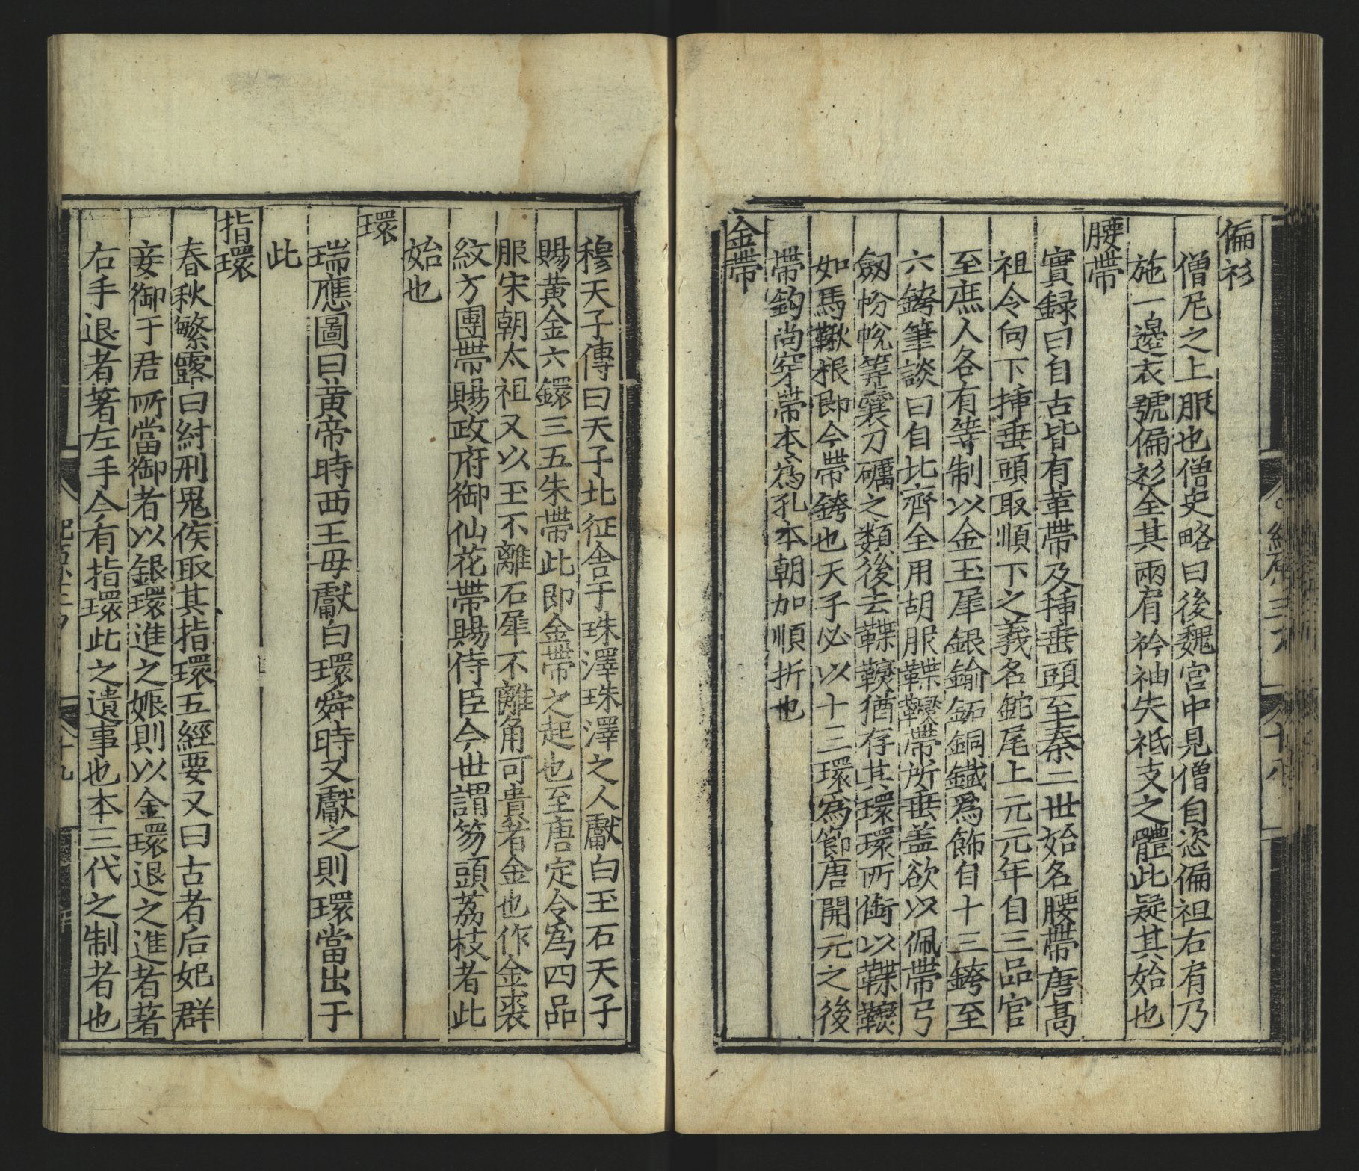 偏衫
僧尼之上服也僧史略曰後魏宮中見僧自恣偏袒右肩乃
施一邊衣號偏衫全其兩肩衿袖失祇支之體此疑其始也
腰帶
實録曰自古皆有革帶及挿垂頭至秦二世始名腰帶唐髙
祖令向下挿垂頭取順下之義名鉈尾上元元年自三品官
至庶人各有等制以金玉犀銀鍮鉐銅鐵爲飾自十三銙至
六銙筆談曰自北齊全用胡服鞢䪎帶所垂盖欲以佩帶弓
劔帉帨筭囊刀礪之類後去鞢䪎猶存其環環所銜以鞢䪎
如馬鞦根即今帶銙也天子必以十三環爲節唐開元之後
帶鈎尚穿帶本爲孔本朝加順折也
金帶
穆天子傳曰天子北征舎于珠澤珠澤之人獻白玉石天子
賜黃金六鐶三五朱帶此即金帶之起也至唐定令爲四品
服宋朝太祖又以玉不離石犀不離角可貴者金也作金裘
紋方團帶賜政府御仙花帶賜侍臣今世謂笏頭荔枝者此
始也
環
瑞應圖曰黄帝時西王母獻白環舜時又獻之則環當出于
此
指環
春秋繁露曰紂刑鬼侯取其指環五經要又曰古者后妃群
妾御于君所當御者以銀環進之娠則以金環退之進者著
右手退者著左手今有指環此之遺事也本三代之制者也
十九